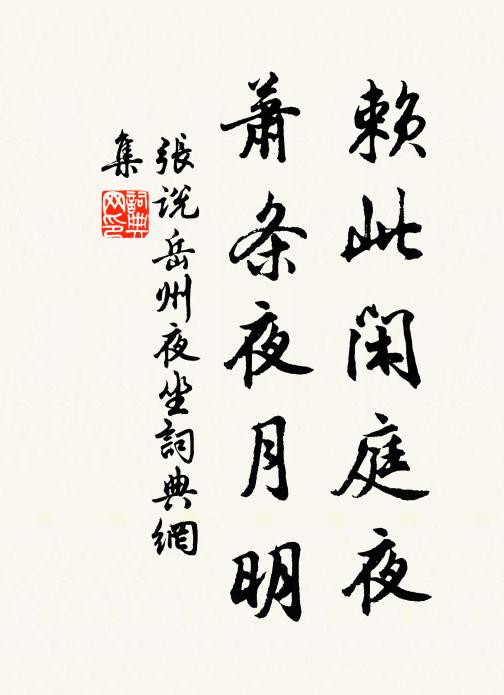 赖此闲庭夜
萧条夜月明
張说岳州夜坐詞典網
集
詞典
网印